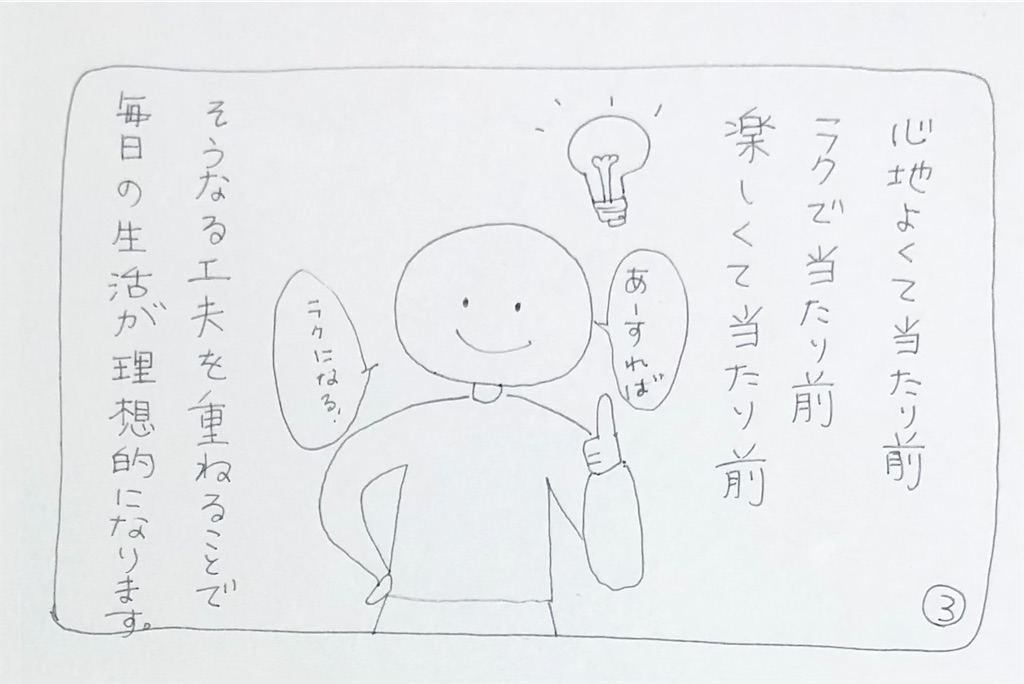 心地よくて当たり前
ラクで当たり前
楽しくて当たり前
あーすれば
ラクになる!
そうなる工夫を重ねることで
毎日の生活が理想的になります。
③